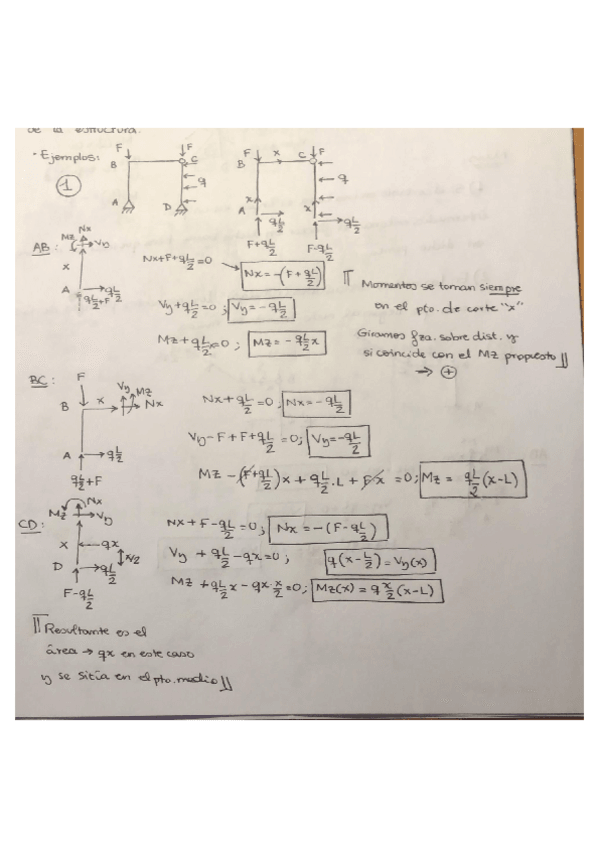 de la estructura.
· Ejemplos:
1
F F
B C
q
A D
F x F
B C
q
x x
A qL/2 qL/2
F+qL/2 F-qL/2
AB:
Mz Nx Vy
x
A qL/2
qL/2+F
Nx+F+qL/2=0
Nx=-(F+qL/2)
Vy+qL/2=0; Vy=-qL/2
Mz+qL/2x=0; Mz=-qL/2x
Momentos se toman siempre
en el pto. de corte "x"
Giramos fza. sobre dist. y
si coincide con el Mz propuesto
→ +
BC:
F
B x Vy Mz Nx
A qL/2
qL/2+F
Nx+qL/2=0; Nx=-qL/2
Vy-F+F+qL/2=0; Vy=-qL/2
Mz-(F+qL/2)x+qL/2·L+Fx=0; Mz=qL/2(x-L)
CD:
Nx
Mz Vy
x qx
x/2
D qL/2
F-qL/2
Nx+F-qL/2=0; Nx=-(F-qL/2)
Vy+qL/2-qx=0; q(x-L/2)=Vy(x)
Mz+qL/2x-qx·x/2=0; Mz(x)=qx/2(x-L)
Resultante es el
área → qx en este caso
y se sitúa en el pto. medio